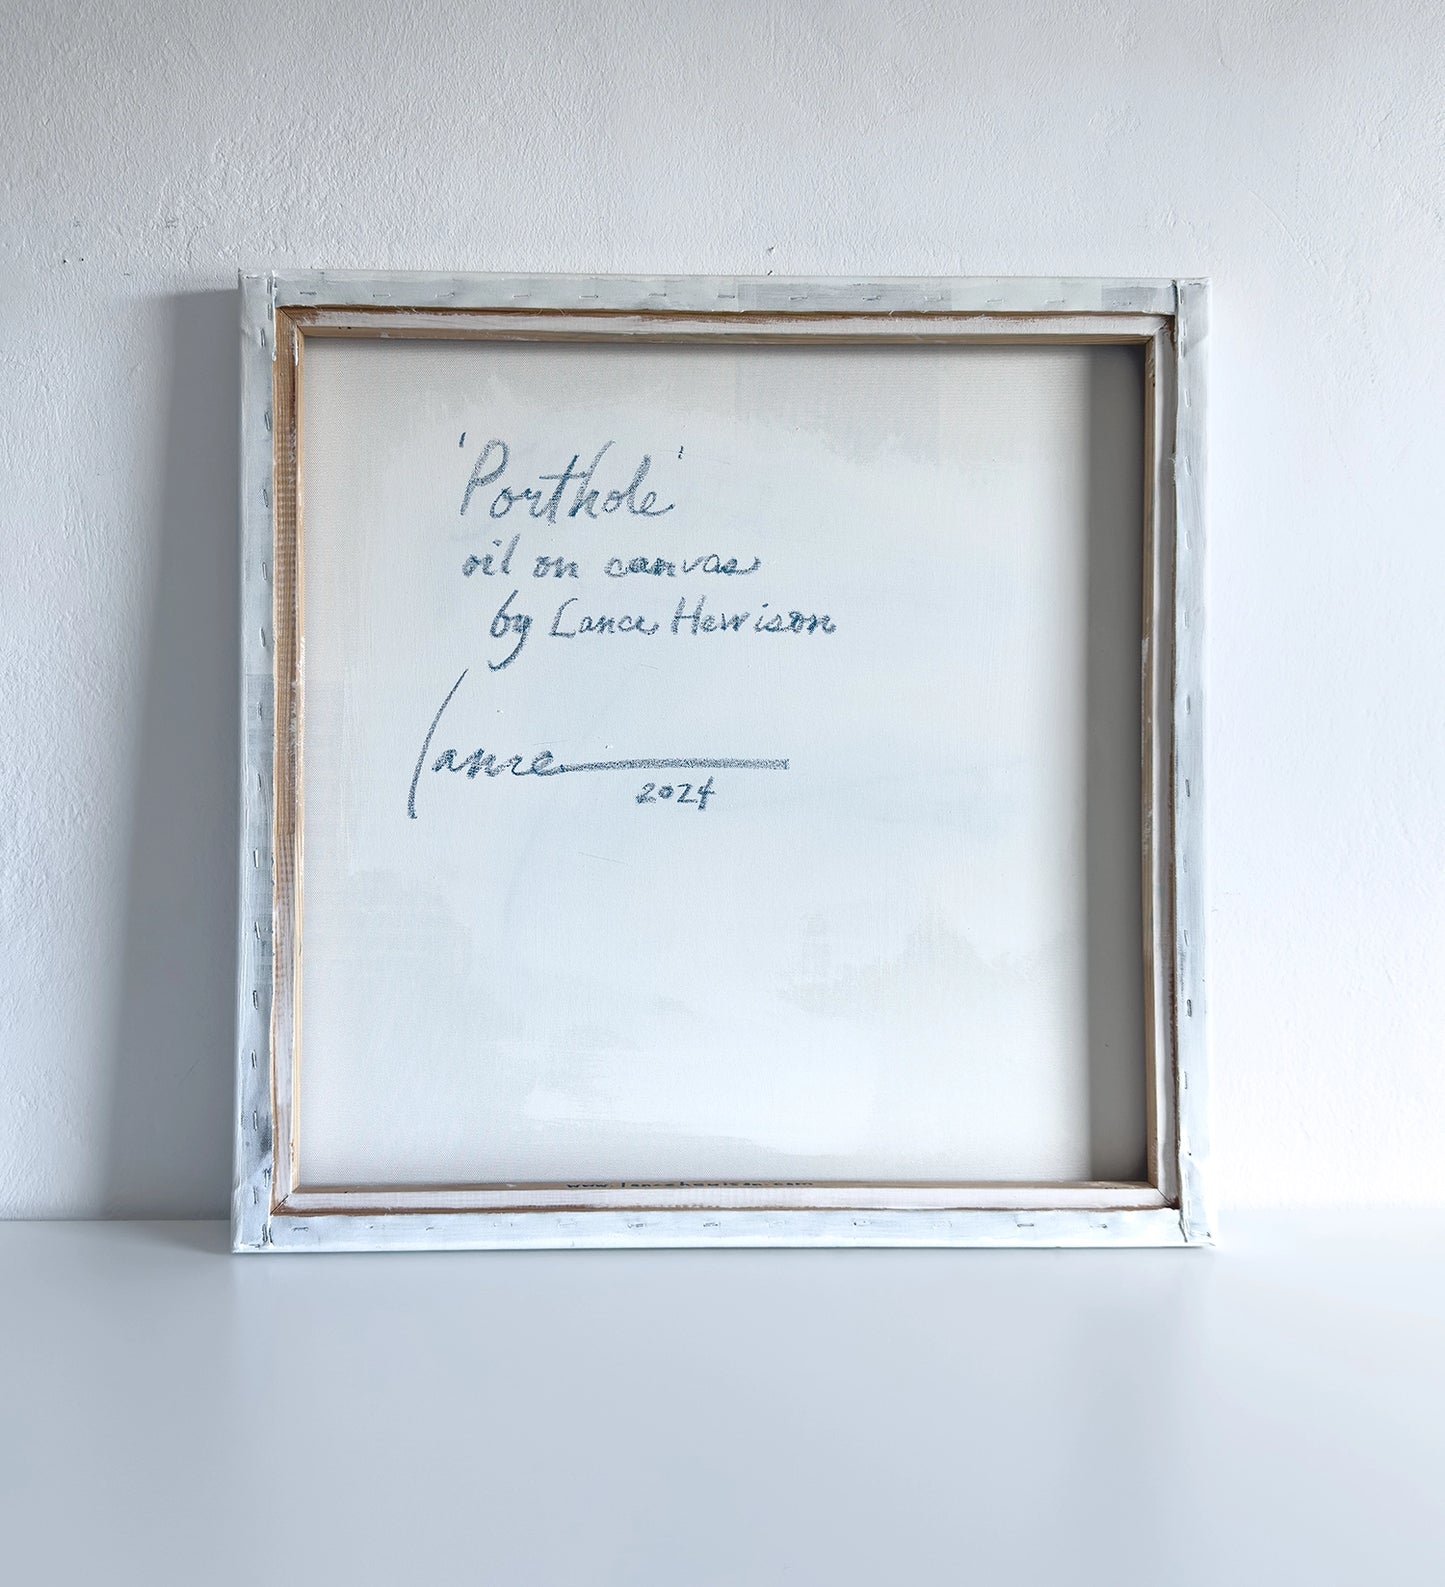 'Porthole'
oil on canvas
by Lance Hewison
Lance
2024
www.lancehewison.com